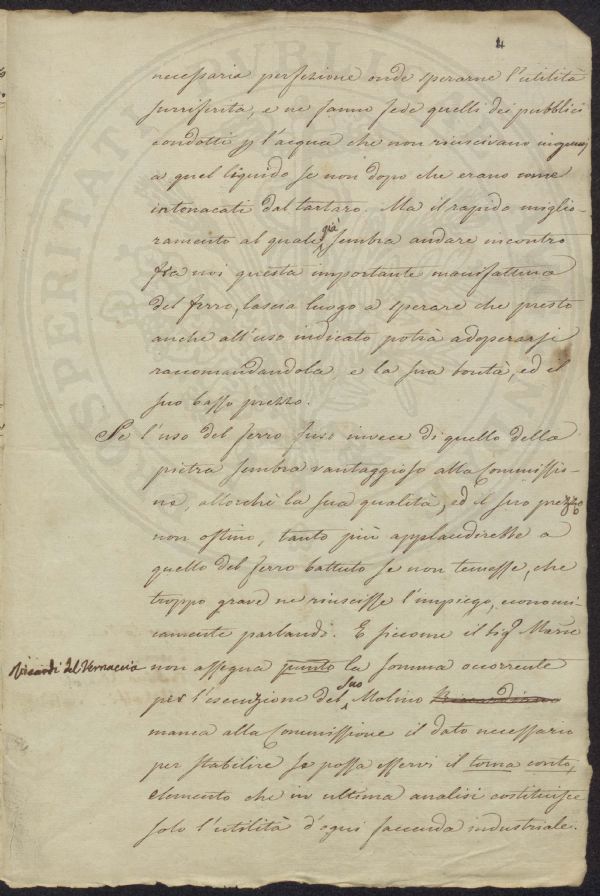 4
necessaria perfezione onde sperarne l'utilità
surriferita, e ne fanno fede quelli dei pubblici
condotti p l'acqua che non riuscivano
a quel liquido se non dopo che erano come
intonacati dal tartaro. Ma il rapido miglio-
ramento al quale già sembra andare incontro
fra noi questa importante manifattura
del ferro, lascia luogo a sperare che presto
anche all'uso indicato potrà adoperarsi
raccomandandola, e la sua bontà, ed il
suo basso prezzo.
Se l'uso del ferro fuso invece di quello della
pietra sembra vantaggioso alla Commissio-
ne, allorchè la sua qualità, ed il suo prezzo
non ostino, tanto più applaudirebbe a
quello del ferro battuto se non temesse, che
troppo grave ne riuscisse l'impiego, economi-
camente parlando. E siccome il Sig.r March
Ricardi del Vernaccia non assegna punto la somma occorrente
per l'esecuzione del suo Molino
manca alla Commissione il dato necessario
per stabilire se possa esservi il torna conto,
elemento che in ultima analisi costituisce
solo l'utilità d'ogni faccenda industriale.
PROSPERITATI PVBLICAE